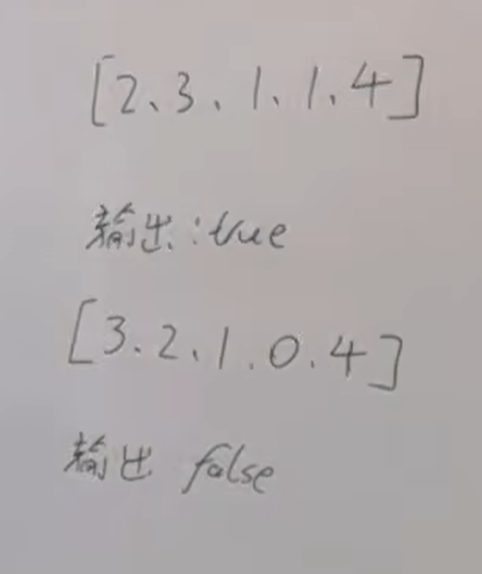 [2、3、1、1、4]
输出:true
[3.2.1.0.4]
输出 false